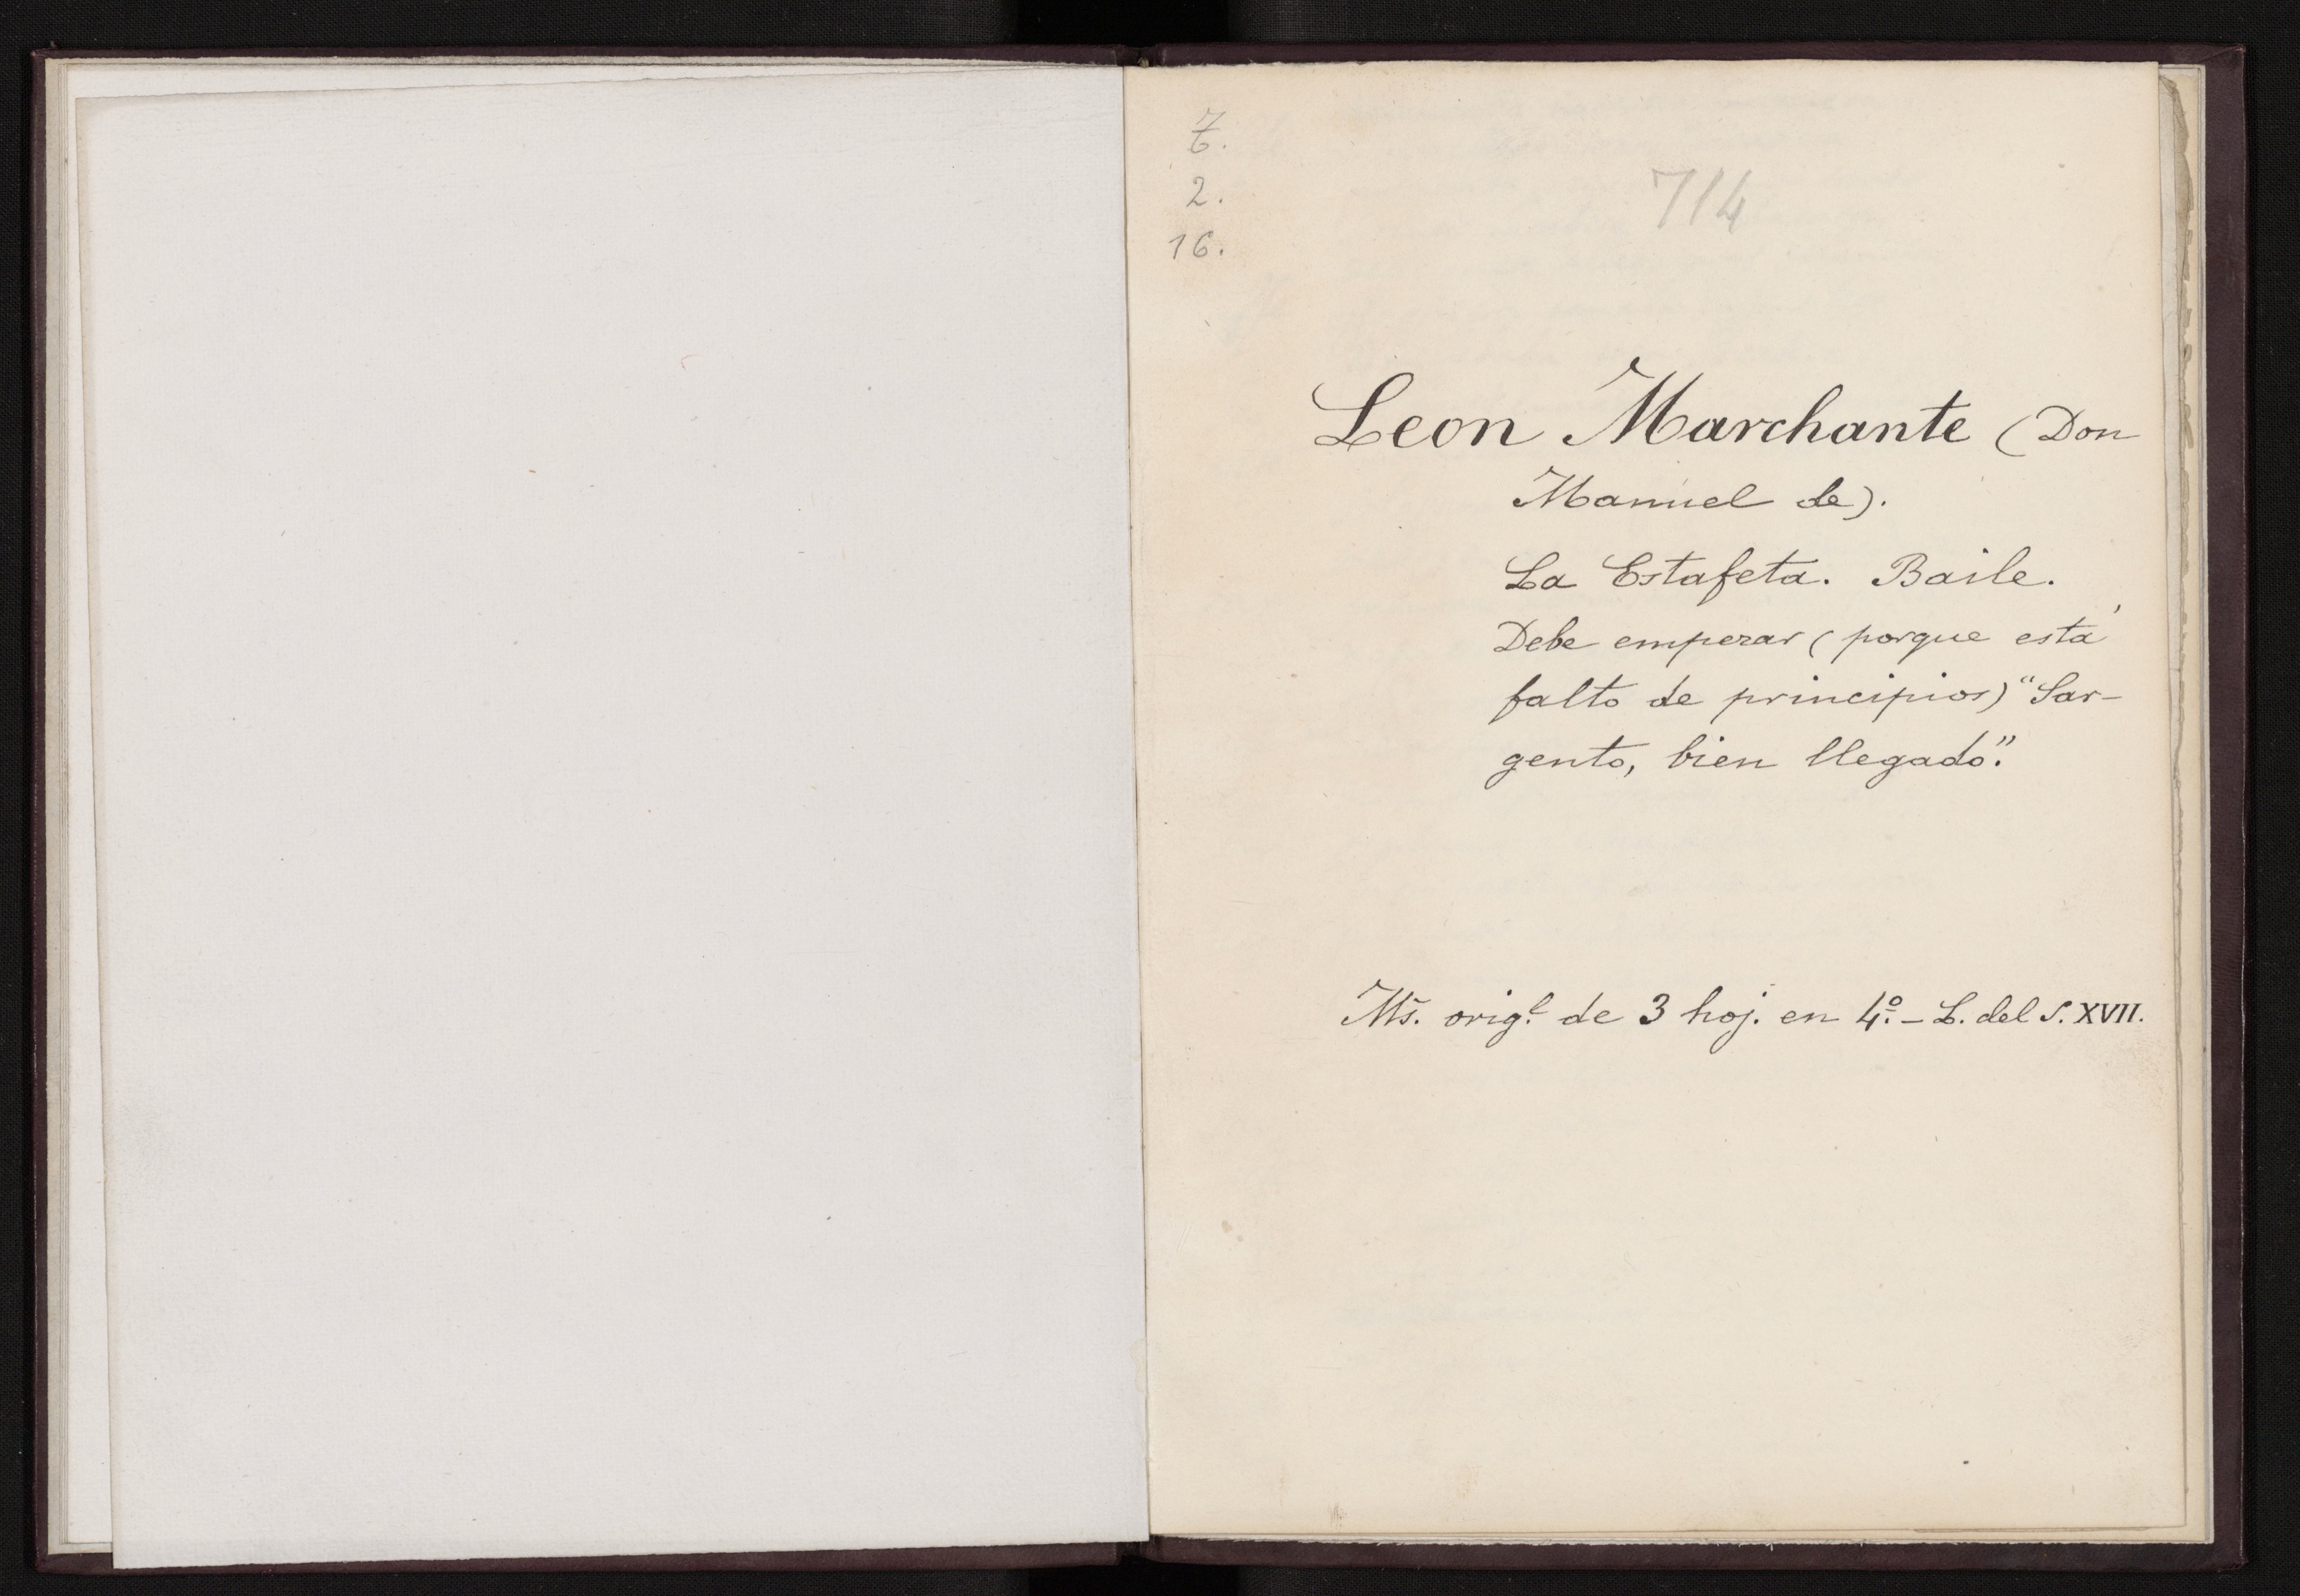 7.
2.
16.
714
Leon Marchante (Don
Manuel de).
La Estafeta. Baile.
Debe empezar (porque está
falto de principios) "Sar-
gento, bien llegado".
Ms. orig.l de 3 hoj. en 4.º - L. del S. XVII.